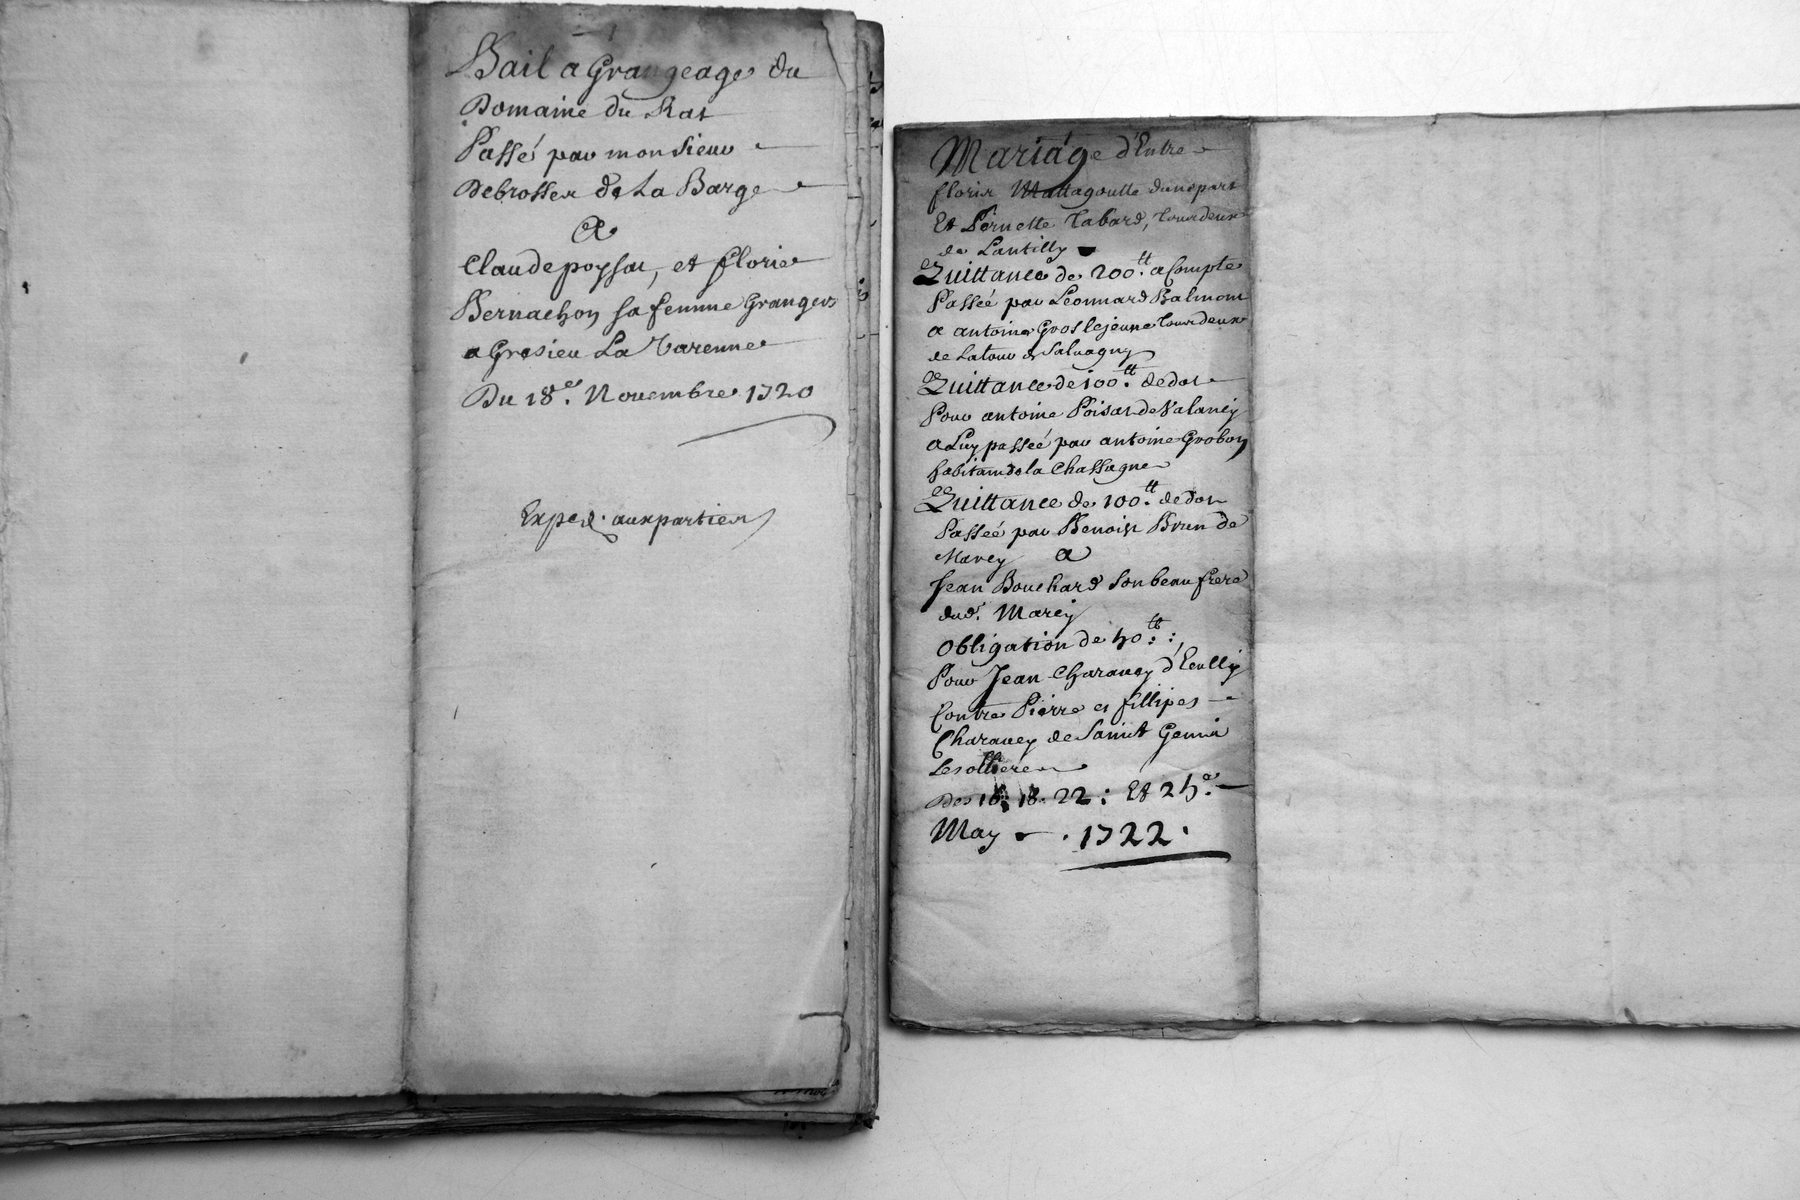 Bail a Grangeage du
Domaine du Rat
Passé par monsieur
Debrosses de La Barge
A
Claude poysat, et florie
Bernachon sa femme Grangers
a Gresieu La Varenne
Du 18e. Novembre 1720
Exped. aux parties
Mariage d'Entre
floris Mattagoutte dune part
Et Pernette Tabard, tourdeux
de Lantilly
Quittance de 200tt. a Compte
Passée par Leonnard Balmont
a antoine Gros lejeune tourdeux
de Latour de Salvagny
Quittance de 100tt. de dot
Pour antoine Poisat de
a Luy passée par antoine Grobon
habitant de la Chassagne
Quittance de 100tt. de dot
Passée par Benoist Brun de
Marcy a
Jean Bouchard son beau frere
dud. Marcy
Obligation de 50tt.
Pour Jean Charavey d'Eculliy
Contre Pierre et fillipes
Charavey de Saint Genis
Lesollieres
Des 18. 22: Et 25e.
May 1722.